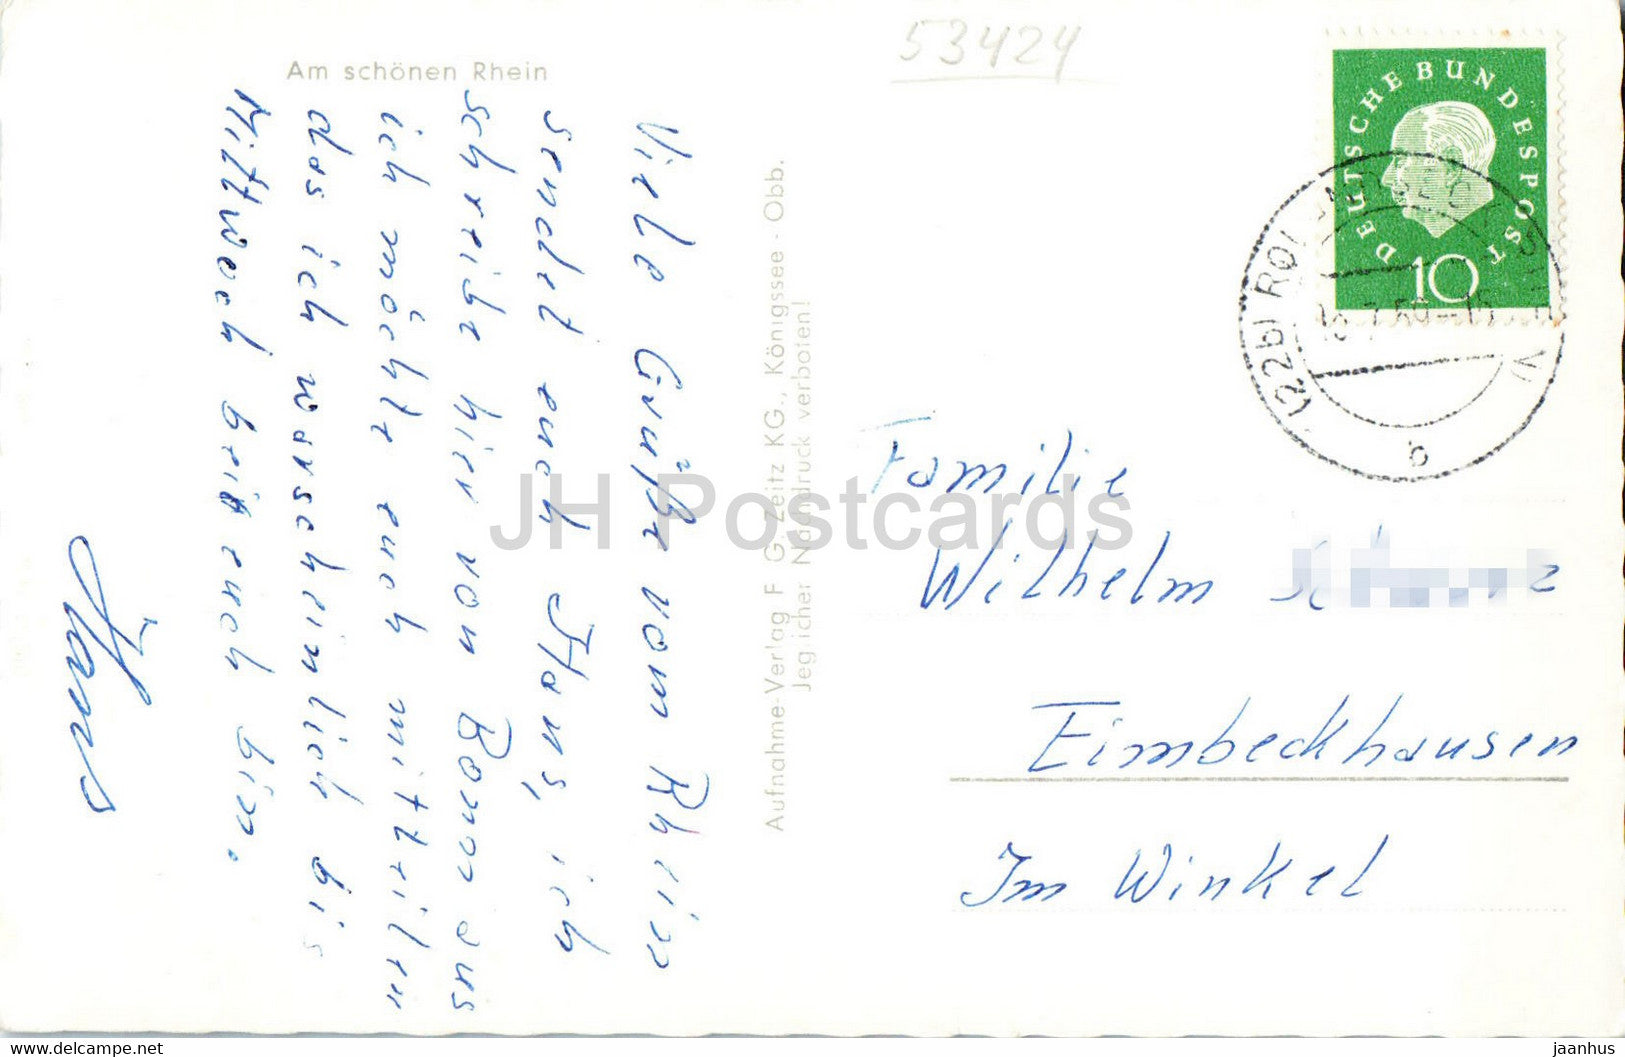 53424
Am schönen Rhein
Viele Grüße vom Rhein
sendet euch Hans, ich
schreibe hir von Bonn aus
ich möchte euch mitteilen
das ich warscheinlich bis
Mittwoch bei euch bin.
Hans
Aufnahme-Verlag F. G. Zeitz KG., Königssee - Obb.
Jeglicher Nachdruck verboten!
DEUTSCHE BUNDESPOST
10
(22b)
b
Familie
Wilhelm
Eimbeckhausen
Im Winkel
JH Postcards
www.delcampe.net
jaanhus